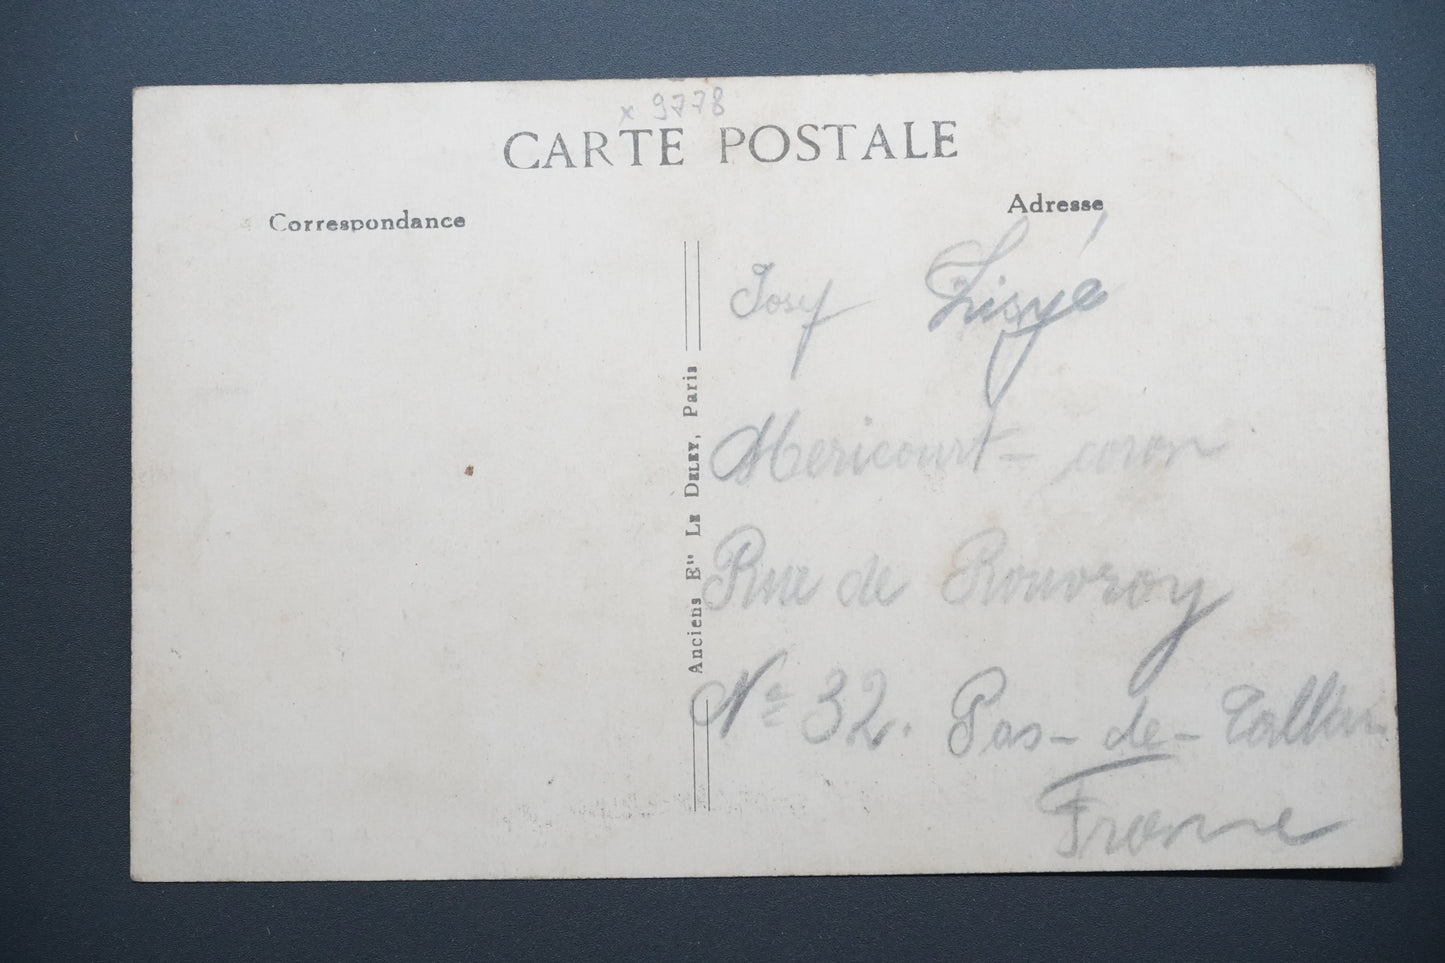 x 9778
CARTE POSTALE
Correspondance
Adresse
Anciens Ets LE DELEY, Paris
Josef
Mericourt - coron
Rue de Rouvroy
No 32. Pas - de -
France